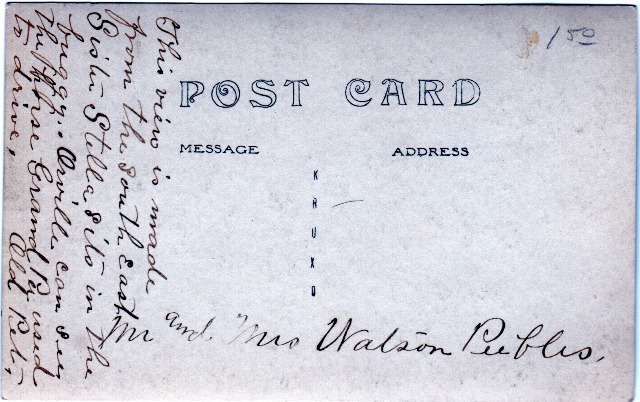 1 50
POST CARD
MESSAGE
ADDRESS
KRUXO
This view is made
from the South East
Sister Stella sits in the
buggy. Orville can see
the Horse Grand Pa used
to drive, Old Pet,
Mr and Mrs Watson Peebles,